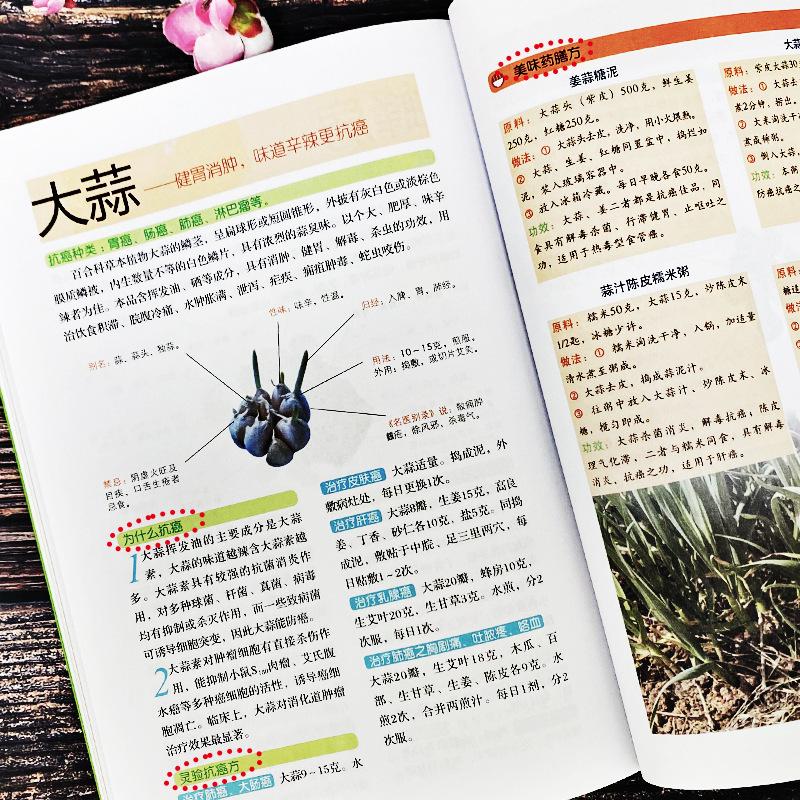 大蒜
——健胃消肿，味道辛辣更抗癌
抗癌种类：胃癌、肠癌、肺癌、淋巴瘤等。
百合科草本植物大蒜的鳞茎，呈扁球形或短圆锥形，外披有灰白色或淡棕色
膜质鳞被，内生数量不等的白色鳞片，具有浓烈的蒜臭味。以个大、肥厚、味辛
辣者为佳。本品含挥发油、硒等成分，具有消肿、健胃、解毒、杀虫的功效，用
治饮食积滞、脘腹冷痛、水肿胀满、泄泻、疟疾、痈疽肿毒、蛇虫咬伤。
别名：蒜、蒜头、独蒜。
性味：味辛，性温。
归经：入脾、胃、肺经。
用法：10～15克，煎服。
外用：捣敷，或切片艾灸。
《名医别录》说：散痈肿
䘌疮，除风邪，杀毒气。
禁忌：阴虚火旺及
目疾、口舌生疮者
忌食。
为什么抗癌
1 大蒜挥发油的主要成分是大蒜
素，大蒜的味道越辣含大蒜素越
多。大蒜素具有较强的抗菌消炎作
用，对多种球菌、杆菌、真菌、病毒
均有抑制或杀灭作用，而一些致病菌
可诱导细胞突变，因此大蒜能防癌。
2 大蒜素对肿瘤细胞有直接杀伤作
用，能抑制小鼠S₁₈₀肉瘤、艾氏腹
水癌等多种癌细胞的活性，诱导癌细
胞凋亡。临床上，大蒜对消化道肿瘤
治疗效果最显著。
灵验抗癌方
治疗肺癌、大肠癌 大蒜9～15克。水
治疗皮肤癌 大蒜适量。捣成泥，外
敷病灶处，每日更换1次。
治疗肝癌 大蒜8瓣，生姜15克，高良
姜、丁香、砂仁各10克，盐5克。同捣
成泥，敷贴于中脘、足三里两穴，每
日贴敷1～2次。
治疗乳腺癌 大蒜20瓣，蜂房10克，
生艾叶20克，生甘草3克。水煎，分2
次服，每日1次。
治疗肺癌之胸剧痛、吐脓痰、咯血
大蒜20瓣，生艾叶18克，木瓜、百
部、生甘草、生姜、陈皮各9克。水
煎2次，合并两煎汁。每日1剂，分2
次服。
美味药膳方
姜蒜糖泥
原料：大蒜头（紫皮）500克，鲜生姜
250克，红糖250克。
做法：① 大蒜头去皮，洗净，用小火煨熟。
② 大蒜、生姜、红糖同置盆中，捣烂如
泥，装入玻璃容器中。
③ 放入冰箱冷藏。每日早晚各食50克。
功效：大蒜、姜二者都是抗癌佳品，同
食具有解毒杀菌、行滞健胃、止呕吐之
功，适用于热毒型食管癌。
蒜汁陈皮糯米粥
原料：糯米50克，大蒜15克，炒陈皮末
1/2匙，冰糖少许。
做法：① 糯米淘洗干净，入锅，加适量
清水煮至粥成。
② 大蒜去皮，捣成蒜泥汁。
③ 往粥中放入大蒜汁、炒陈皮末、冰
糖，搅匀即成。
功效：大蒜杀菌消炎，解毒抗癌；陈皮
理气化滞，二者与糯米同食，具有解毒
消炎、抗癌之功，适用于肝癌。
大蒜
原料：紫皮大蒜30
做法：① 大蒜去
煮2分钟，捞出。
② 大米淘洗干
煮成稀粥。
③ 倒入大蒜，
功效：本粥
防癌抗癌之
原料
糖适
做法